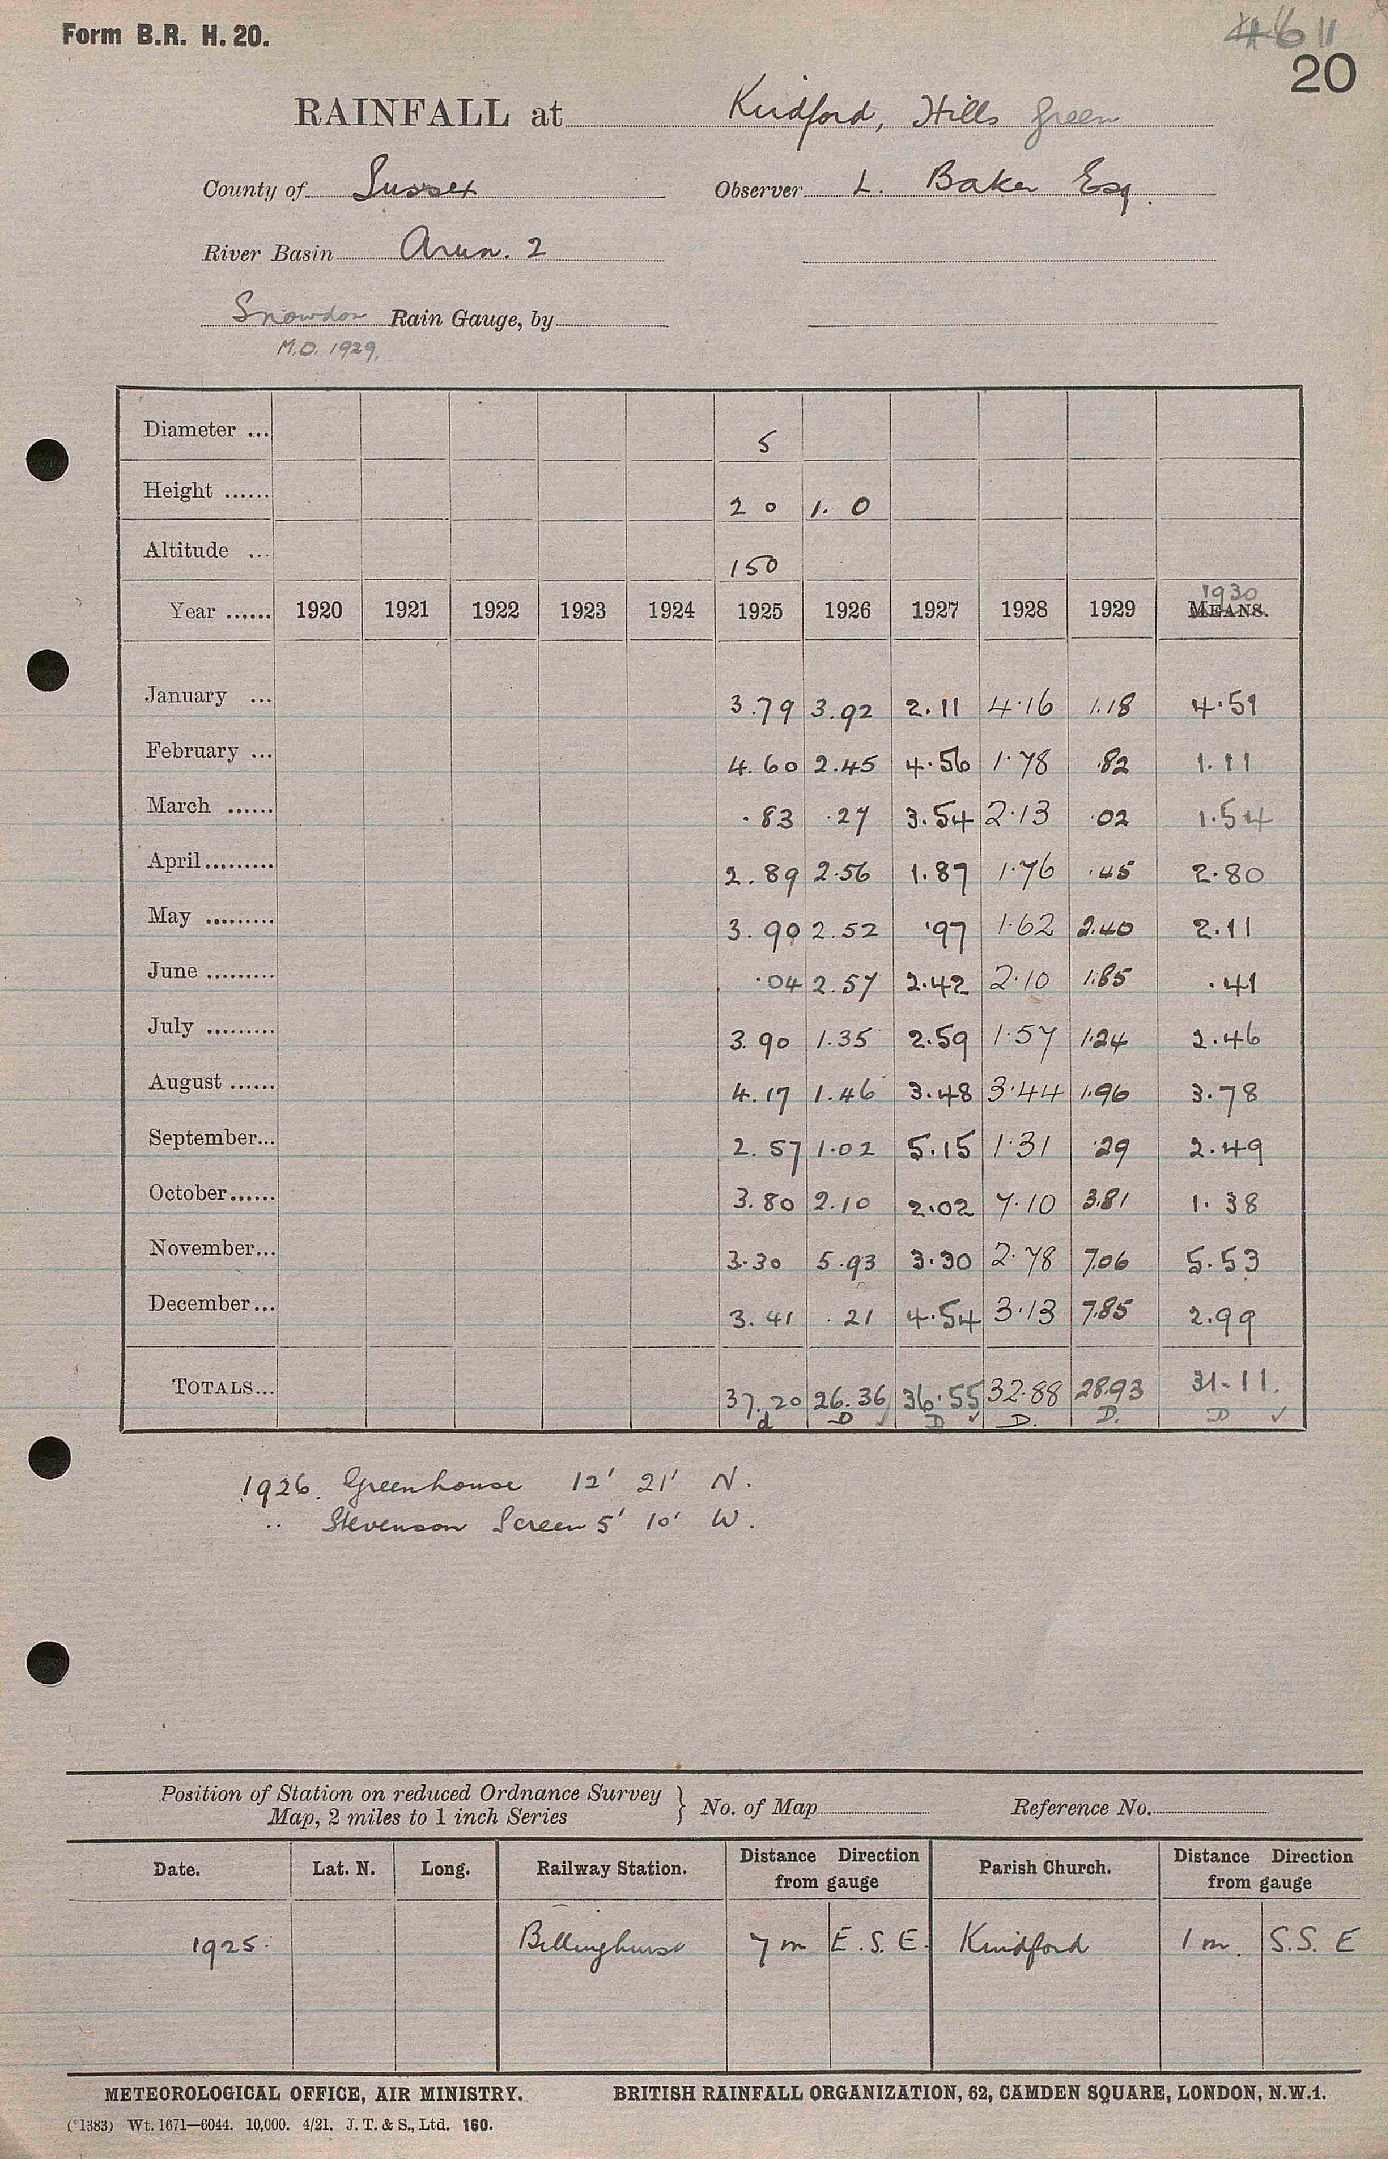 Form B.R. H. 20.
4611
20
RAINFALL at Kirdford, Hills Green
County of Sussex Observer L. Baker Esq.
River Basin Arun. 2
Snowdon Rain Gauge, by
M.O. 1929.
Diameter ... 5
Height ...... 2 0 1. 0
Altitude ... 150
1930
Year ...... 1920 1921 1922 1923 1924 1925 1926 1927 1928 1929 MEANS.
January ... 3.79 3.92 2.11 4.16 1.18 4.51
February ... 4.60 2.45 4.56 1.78 .82 1.11
March ...... .83 .27 3.54 2.13 .02 1.54
April......... 2.89 2.56 1.87 1.76 .45 2.80
May ......... 3.90 2.52 .97 1.62 2.40 2.11
June ......... .04 2.57 2.42 2.10 1.85 .41
July ......... 3.90 1.35 2.59 1.57 1.24 2.46
August ...... 4.17 1.46 3.48 3.44 1.96 3.78
September... 2.57 1.02 5.15 1.31 .29 2.49
October...... 3.80 2.10 2.02 7.10 3.81 1.38
November... 3.30 5.93 3.30 2.78 7.06 5.53
December... 3.41 .21 4.54 3.13 7.85 2.99
TOTALS... 37.20 26.36 36.55 32.88 28.93 31.11.
d D ✓ D ✓ D. D. D ✓
1926. Greenhouse 12' 21' N.
" Stevenson Screen 5' 10' W.
Position of Station on reduced Ordnance Survey
Map, 2 miles to 1 inch Series } No. of Map Reference No.
Date. Lat. N. Long. Railway Station. Distance Direction from gauge Parish Church. Distance Direction from gauge
1925. Billinghurst 7 m E. S. E. Kirdford 1 m. S.S. E
METEOROLOGICAL OFFICE, AIR MINISTRY. BRITISH RAINFALL ORGANIZATION, 62, CAMDEN SQUARE, LONDON, N.W.1.
(*1383) Wt. 1671—6044. 10,000. 4/21. J. T. & S., Ltd. 160.